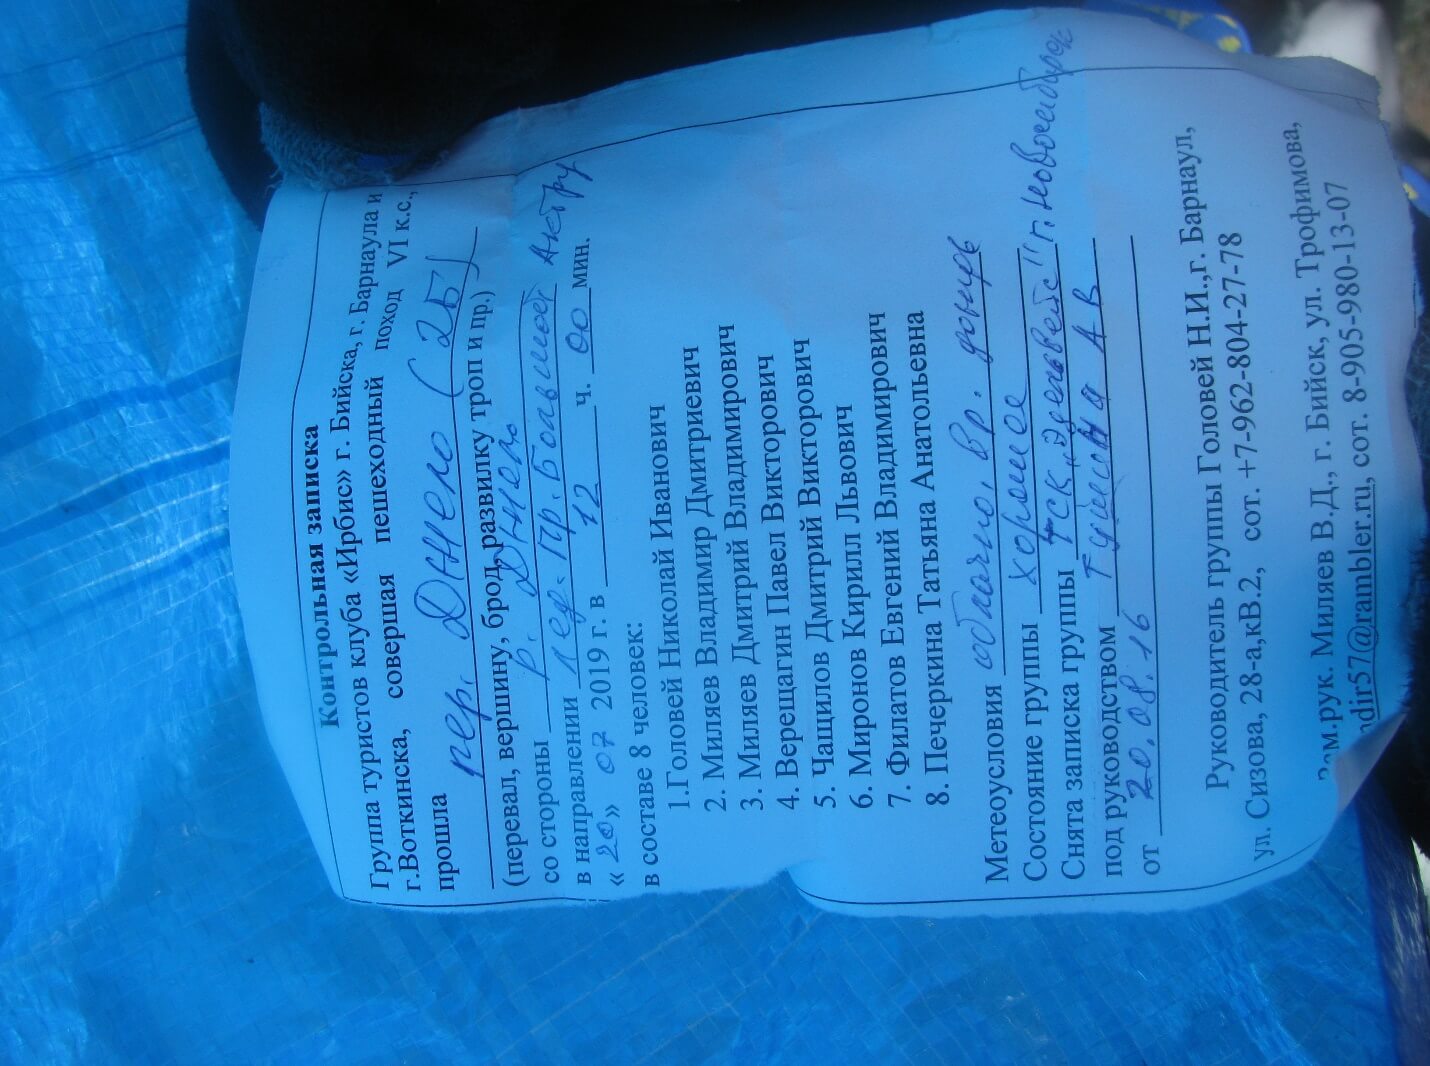 Контрольная записка
Группа туристов клуба «Ирбис» г. Бийска, г. Барнаула и
г.Воткинска, совершая пешеходный поход VI к.с.,
прошла пер. Джело (2Б)
(перевал, вершину, брод, развилку троп и пр.)
со стороны р. Джело
в направлении лед. Пр. Большой Актру
«20» 07 2019 г. в 12 ч. 00 мин.
в составе 8 человек:
1.Головей Николай Иванович
2. Миляев Владимир Дмитриевич
3. Миляев Дмитрий Владимирович
4. Верещагин Павел Викторович
5. Чащилов Дмитрий Викторович
6. Миронов Кирилл Львович
7. Филатов Евгений Владимирович
8. Печеркина Татьяна Анатольевна
Метеоусловия облачно, вр. дождь
Состояние группы хорошее
Снята записка группы тск "Эдельвейс" г. Новосибирск
под руководством А В
от 20.08.16
Руководитель группы Головей Н.И.,г. Барнаул,
ул. Сизова, 28-а,кВ.2, сот. +7-962-804-27-78
Зам.рук. Миляев В.Д., г. Бийск, ул. Трофимова,
adir57@rambler.ru, сот. 8-905-980-13-07